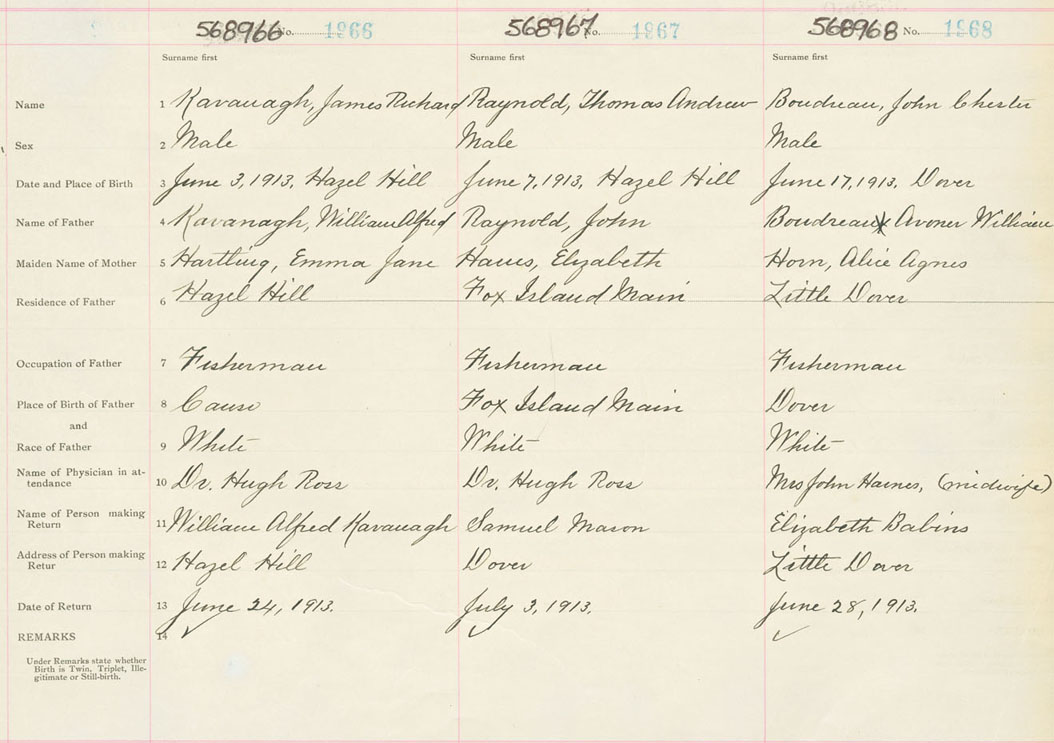 568966 No. 1966 568967 No. 1967 568968 No. 1968
Surname first Surname first Surname first
Name 1 Kavanagh, James Richard Raynold, Thomas Andrew Boudreau, John Chester
Sex 2 Male Male Male
Date and Place of Birth 3 June 3, 1913. Hazel Hill June 7, 1913. Hazel Hill June 17, 1913. Dover
Name of Father 4 Kavanagh, William Alfred Raynold, John Boudreau Avoner William
Maiden Name of Mother 5 Hartling, Emma Jane Elizabeth Horn, Alice Agnes
Residence of Father 6 Hazel Hill Fox Island Main Little Dover
Occupation of Father 7 Fisherman Fisherman Fisherman
Place of Birth of Father 8 Canso Fox Island Main Dover
and
Race of Father 9 White White White
Name of Physician in at-
tendance 10 Dr. Hugh Ross Dr. Hugh Ross Mrs John Haines, (midwife)
Name of Person making
Return 11 William Alfred Kavanagh Samuel Mason Elizabeth Babins
Address of Person making
Retur 12 Hazel Hill Dover Little Dover
Date of Return 13 June 24, 1913. July 3, 1913. June 28, 1913.
REMARKS 14
Under Remarks state whether
Birth is Twin, Triplet, Ille-
gitimate or Still-birth.